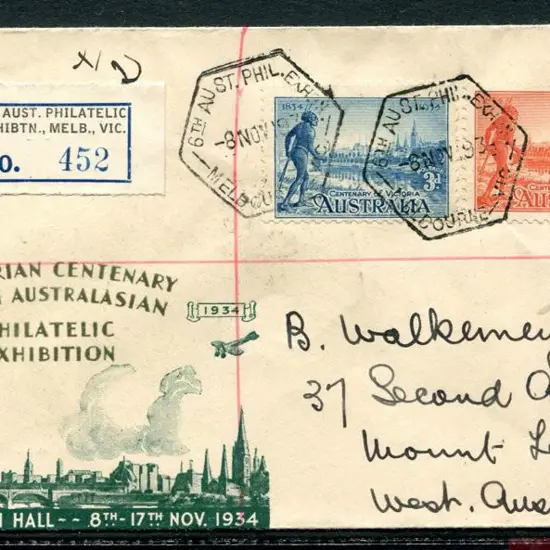 AUST. PHILATELIC
HIBTN., MELB., VIC.
O. 452
6TH AUST. PHIL. EXH
-8 NOV 193
MELBOU
1834 1934
3D
CENTENARY OF VICTORIA
AUSTRALIA
6TH AUST. PHIL. EXH
8 NOV 1934
BOURNE
RIAN CENTENARY
AUSTRALASIAN
PHILATELIC
EXHIBITION
1934
HALL -- 8TH-17TH NOV. 1934
B.
37 Second
Mount
West. Aus